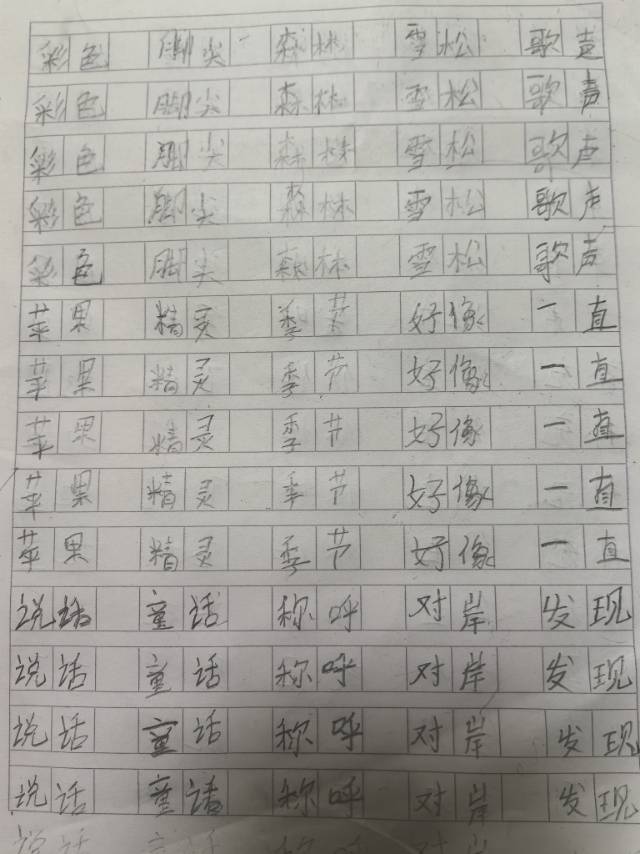 彩色 脚尖 森林 雪松 歌声
彩色 脚尖 森林 雪松 歌声
彩色 脚尖 森林 雪松 歌声
彩色 脚尖 森林 雪松 歌声
彩色 脚尖 森林 雪松 歌声
苹果 精灵 季节 好像 一直
苹果 精灵 季节 好像 一直
苹果 精灵 季节 好像 一直
苹果 精灵 季节 好像 一直
苹果 精灵 季节 好像 一直
说话 童话 称呼 对岸 发现
说话 童话 称呼 对岸 发现
说话 童话 称呼 对岸 发现
说话 童话 称呼 对岸 发现
说话 童话 称呼 对岸 发现